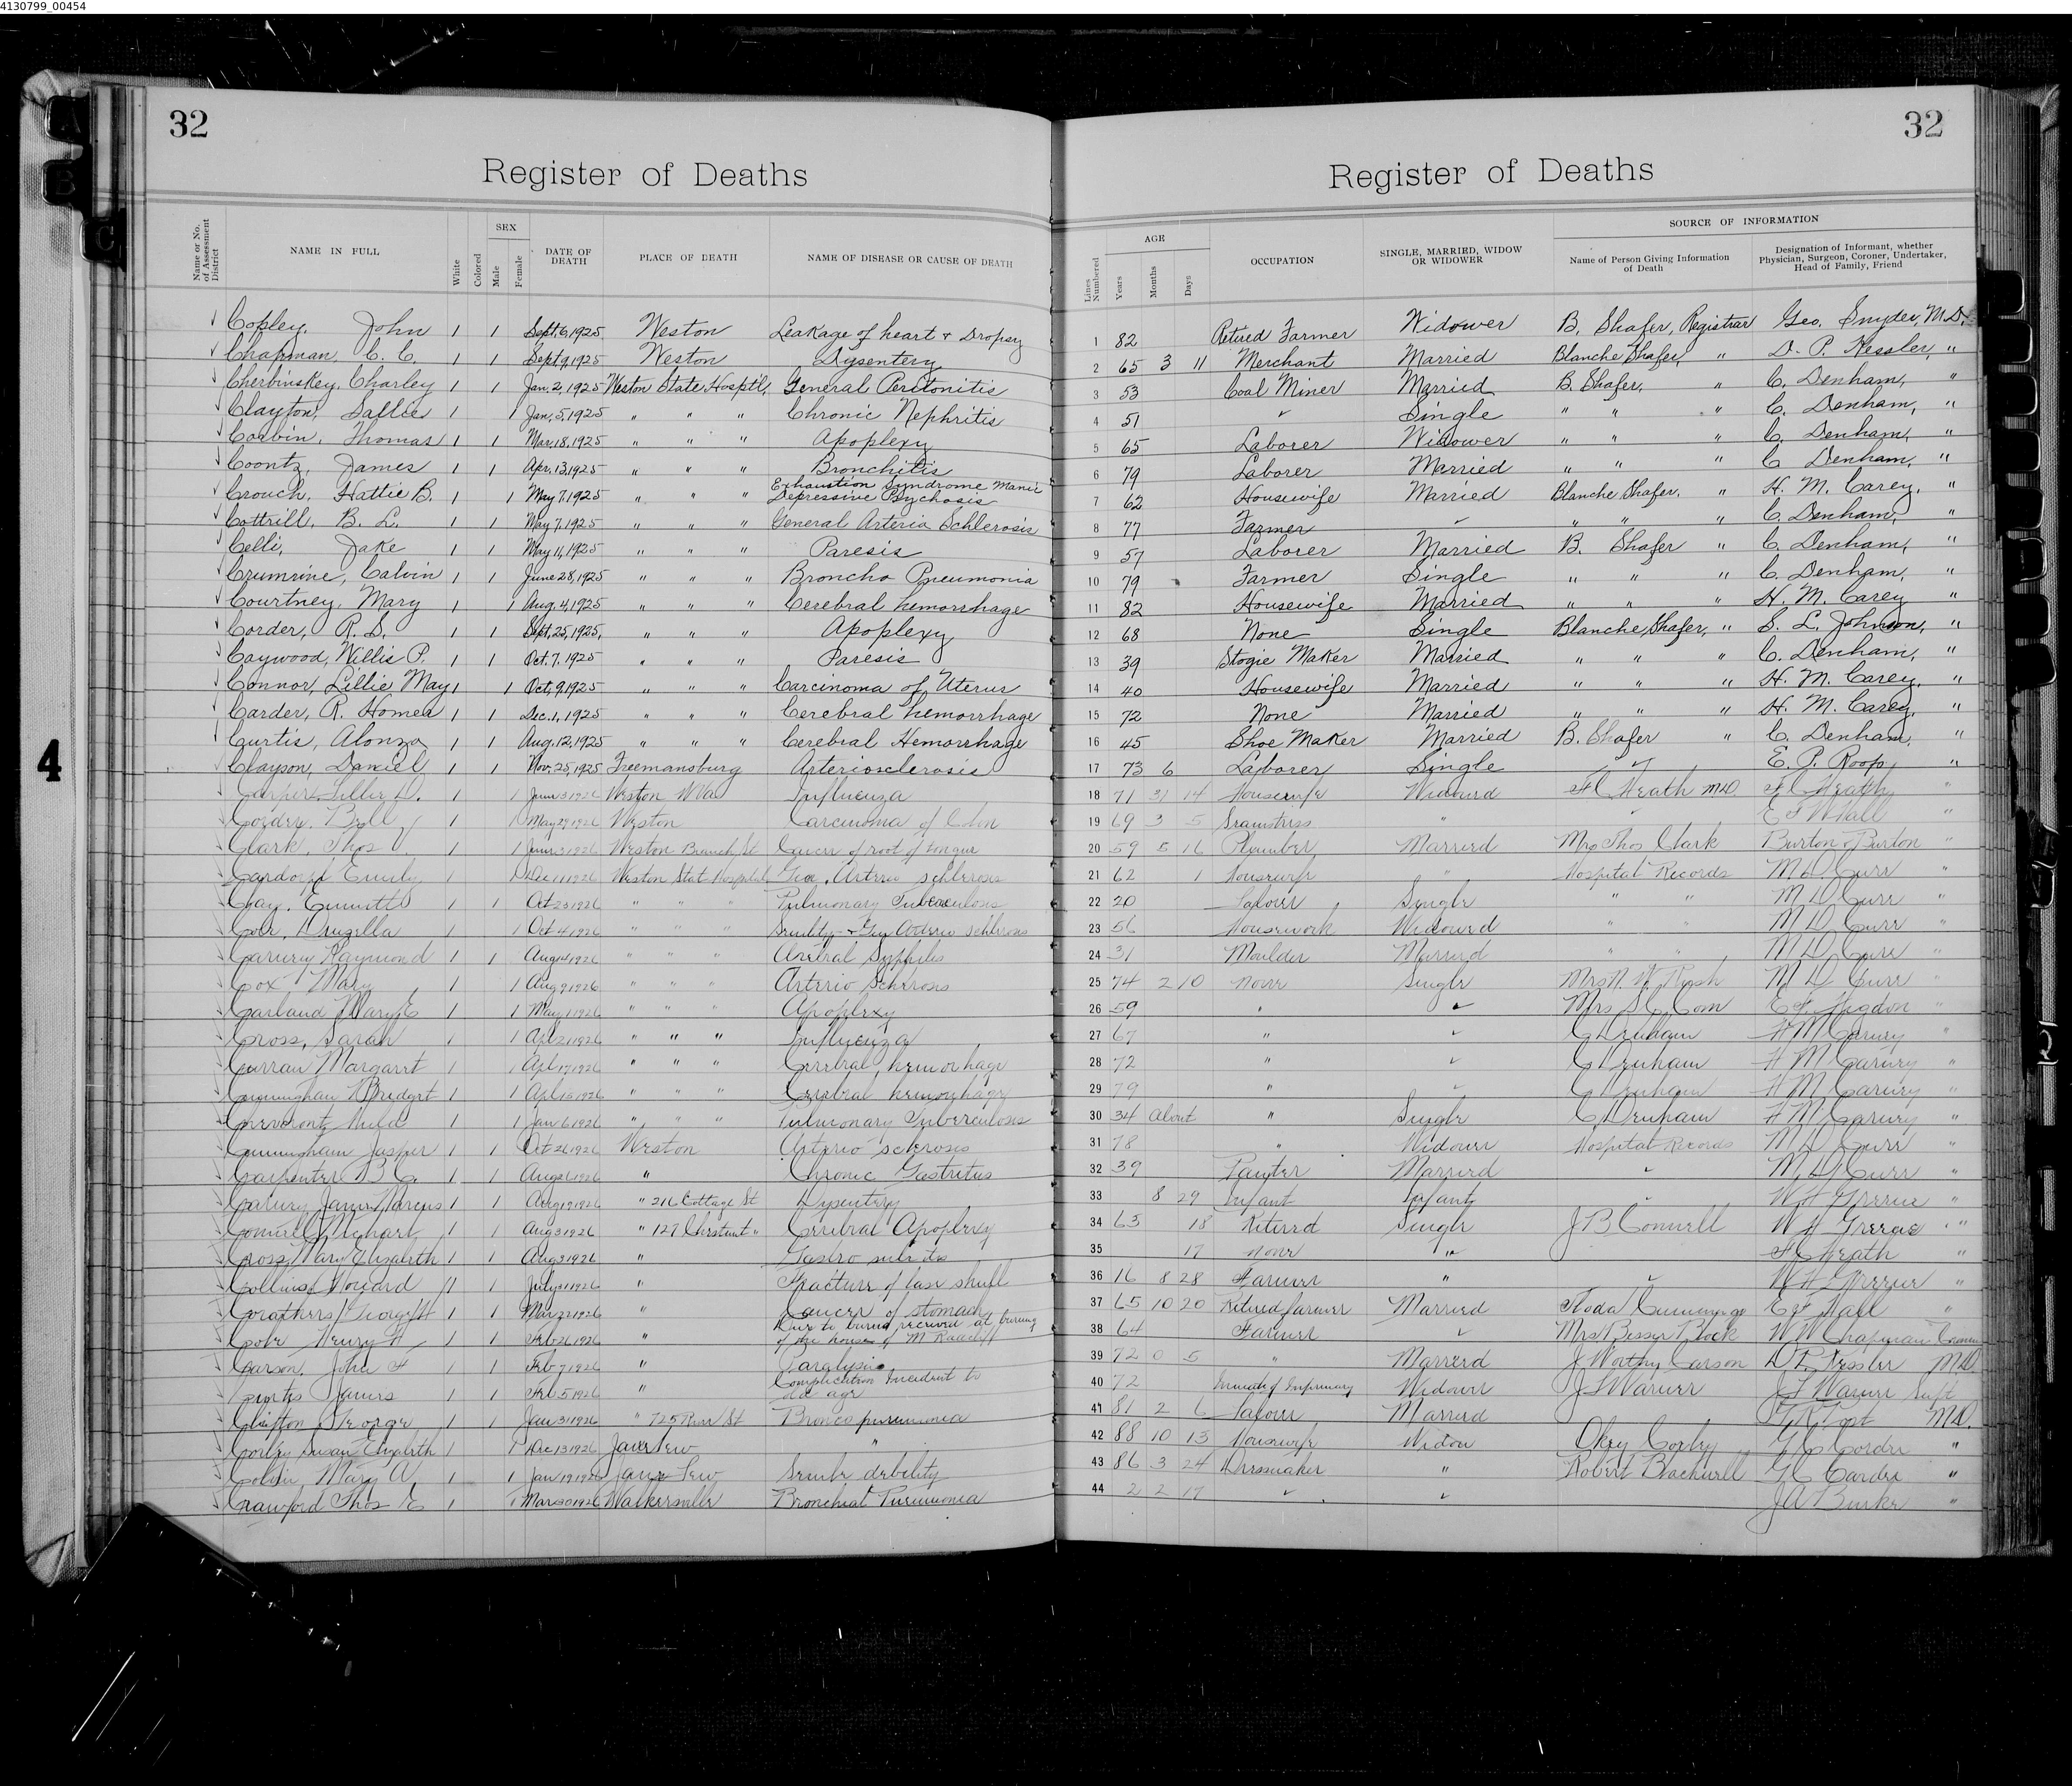 4130799_00454
32
32
Register of Deaths
Register of Deaths
Name or No. of Assessment District
NAME IN FULL
White
Colored
SEX
Male
Female
DATE OF DEATH
PLACE OF DEATH
NAME OF DISEASE OR CAUSE OF DEATH
Lines Numbered
AGE
Years
Months
Days
OCCUPATION
SINGLE, MARRIED, WIDOW OR WIDOWER
SOURCE OF INFORMATION
Name of Person Giving Information of Death
Designation of Informant, whether Physician, Surgeon, Coroner, Undertaker, Head of Family, Friend
Copley, John 1 1 Sept. 6, 1925 Weston Leakage of heart & Dropsy 1 82 Retired Farmer Widower B. Shafer, Registrar Geo. Snyder, M.D.
Chapman, C. C. 1 1 Sept. 9, 1925 Weston Dysentery 2 65 3 11 Merchant Married Blanche Shafer, " D. P. Kessler, "
Cherbinskey, Charley 1 1 Jan. 2, 1925 Weston State Hosptl. General Peritonitis 3 53 Coal Miner Married B. Shafer, " C. Denham, "
Clayton, Sallie 1 1 Jan. 5, 1925 " " " Chronic Nephritis 4 51 Single " " " C. Denham, "
Corbin, Thomas 1 1 Mar. 18, 1925 " " " Apoplexy 5 65 Laborer Widower " " " C. Denham, "
Coontz, James 1 1 Apr. 13, 1925 " " " Bronchitis 6 79 Laborer Married " " " C Denham, "
Crouch, Hattie B. 1 1 May 7, 1925 " " " Exhaustion Syndrome Manic Depressive Psychosis 7 62 Housewife Married Blanche Shafer, " H. M. Carey, "
Cottrill, B. L. 1 1 May 7, 1925 " " " General Arteria Schlerosis 8 77 Farmer " " " C. Denham, "
Celli, Jake 1 1 May 11, 1925 " " " Paresis 9 57 Laborer Married B. Shafer " C. Denham, "
Crumrine, Calvin 1 1 June 28, 1925 " " " Broncho Pneumonia 10 79 Farmer Single " " " C. Denham, "
Courtney, Mary 1 1 Aug. 4, 1925 " " " Cerebral hemorrhage 11 82 Housewife Married " " " H. M. Carey "
Corder, R. S. 1 1 Sept. 25, 1925, " " " Apoplexy 12 68 None Single Blanche Shafer, " S. L. Johnson, "
Caywood, Willis P. 1 1 Oct. 7, 1925 " " " Paresis 13 39 Stogie Maker Married " " " C. Denham, "
Connor, Lillie May 1 1 Oct. 9, 1925 " " " Carcinoma of Uterus 14 40 Housewife Married " " " H. M. Carey, "
Carder, R. Homer 1 1 Dec. 1, 1925 " " " Cerebral hemorrhage 15 72 None Married " " " H. M. Carey, "
Curtis, Alonzo 1 1 Aug. 12, 1925 " " " Cerebral Hemorrhage 16 45 Shoe Maker Married B. Shafer " C. Denham, "
Clayson, Daniel 1 1 Nov. 25, 1925 Freemansburg Arteriosclerosis 17 73 6 Laborer Single E. P. Roop "
1 1 1926 Weston Influenza 18 71 14 Housewife Widowed Heath M.D. Heath "
Bell 1 1 May 29 1926 Weston Carcinoma of Colon 19 69 3 5 Seamstress " Hall "
Clark, Thos 1 1 1926 Weston Branch St Cancer of root of tongue 20 59 5 16 Plumber Married Mrs Thos Clark Burton & Burton "
Emily 1 1 1926 Weston Stat Hospital Arterio schlerosis 21 62 1 Housewife " Hospital Records M D Curr "
Emmett 1 1 Oct 23 1926 " " " Pulmonary Tuberculosis 22 20 Labour Single " " M D Curr "
Cole, Drusella 1 1 Oct 4 1926 " " " Senility & Gen Arterio Schlerosis 23 56 Housework Widowed " " M D Curr "
Raymond 1 1 Aug 1926 " " " Syphilis 24 31 Moulder Married " " M D Curr "
Cox Mary 1 1 Aug 9 1926 " " " Arterio Schlerosis 25 74 2 10 none Single Mrs Rush M D Curr "
Garland Mary E 1 1 May 1 1926 " " " Apoplexy 26 59 " Mrs Higdon "
Cross, Sarah 1 1 Apl 21 1926 " " " Influenza 27 67 " C Denham H M Carury "
Curran Margaret 1 1 Apl 17 1926 " " " Cerebral hemorhage 28 72 " C Denham H M Carury "
Cunningham Bridget 1 1 Apl 15 1926 " " " Cerebral hemorhage 29 79 " C Denham H M Carury "
1 1 Jan 6 1926 " " " Pulmonary Tuberculosis 30 34 about " Single C Denham H M Carury "
Cunningham Jasper 1 1 Oct 26 1926 Weston Arterio sclerosis 31 78 " Widower Hospital Records M D Curr "
Carpenter B C. 1 1 Aug 1926 " Chronic Gastritus 32 39 Painter Married M. D. Curr "
1 1 Aug 19 1926 " 216 Cottage St Dysentery 33 8 29 Infant Infant W H Greene "
1 1 Aug 3 1926 " 127 Chestnut " Cerebral Apoplexy 34 63 18 Retired Single J B Connell W H Greene "
Cross Mary Elizabeth 1 1 Aug 3 1926 " Gastro 35 17 none " Heath "
Collins Howard 1 1 July 1926 " Fracture of base skull 36 16 8 28 Farmer " W H Greene "
1 1 Mar 22 1926 " Cancer of stomach 37 65 10 20 Retired farmer Married Cummings Hall "
Henry 1 1 Feb 26 1926 " Due to burns received at burning of the house of M 38 64 Farmer Mrs Bessye Block W W Chapman
Carson, John F 1 1 Feb 7 1926 " Paralysis 39 72 0 5 " Married J Worthy Carson D P Kessler M D.
Curtis James 1 1 Feb 5 1926 " Complication incident to old age 40 72 Inmate of Infirmary Widower J S Warner Warner Supt
Clifton George 1 1 Jan 31 1926 " 725 St Bronco pneumonia 41 81 2 6 Labour Married M.D.
Corley Susan Elizabeth 1 1 Dec 13 1926 Jane Lew " 42 88 10 13 Housewife Widow Okey Corley "
Mary A 1 1 Jan 19 1926 Jane Lew Senile debility 43 86 3 24 Dressmaker " Robert "
Crawford Thos E 1 1 Mar 30 1926 Walkersville Bronchial Pneumonia 44 2 2 17 J A Burke "
4